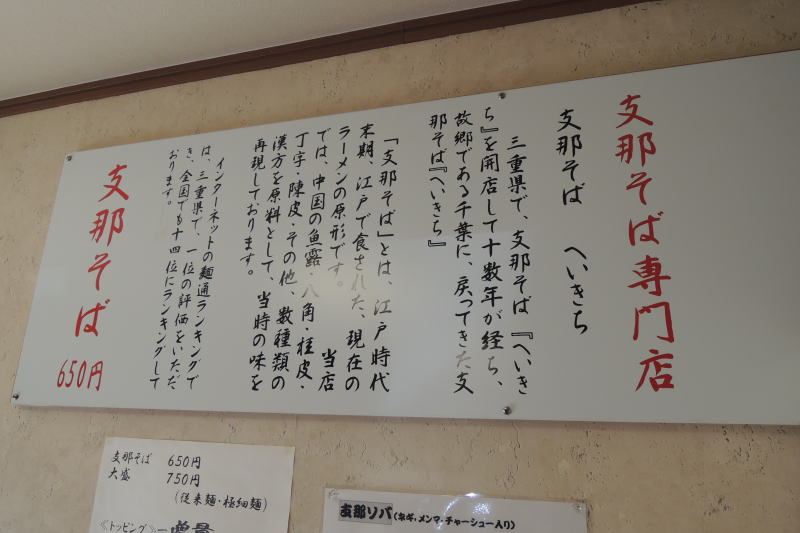 支那そば専門店
支那そば　へいきち
三重県で、支那そば『へいき
ち』を開店して十数年が経ち、
故郷である千葉に、戻ってきた支
那そば『へいきち』
「支那そば」とは、江戸時代
末期、江戸で食された、現在の
ラーメンの原形です。　当店
では、中国の魚露・八角・桂皮・
丁字・陳皮・その他、数種類の
漢方を原料として、当時の味を
再現しております。
インターネットの麺通ランキングで
は、三重県で、一位の評価をいただ
き、全国でも十四位にランキングして
おります。
支那そば
650円
支那そば 650円
大盛 750円
(従来麺・極細麺)
≪トッピング≫
支那ソバ(ネギ、メンマ、チャーシュー入り)